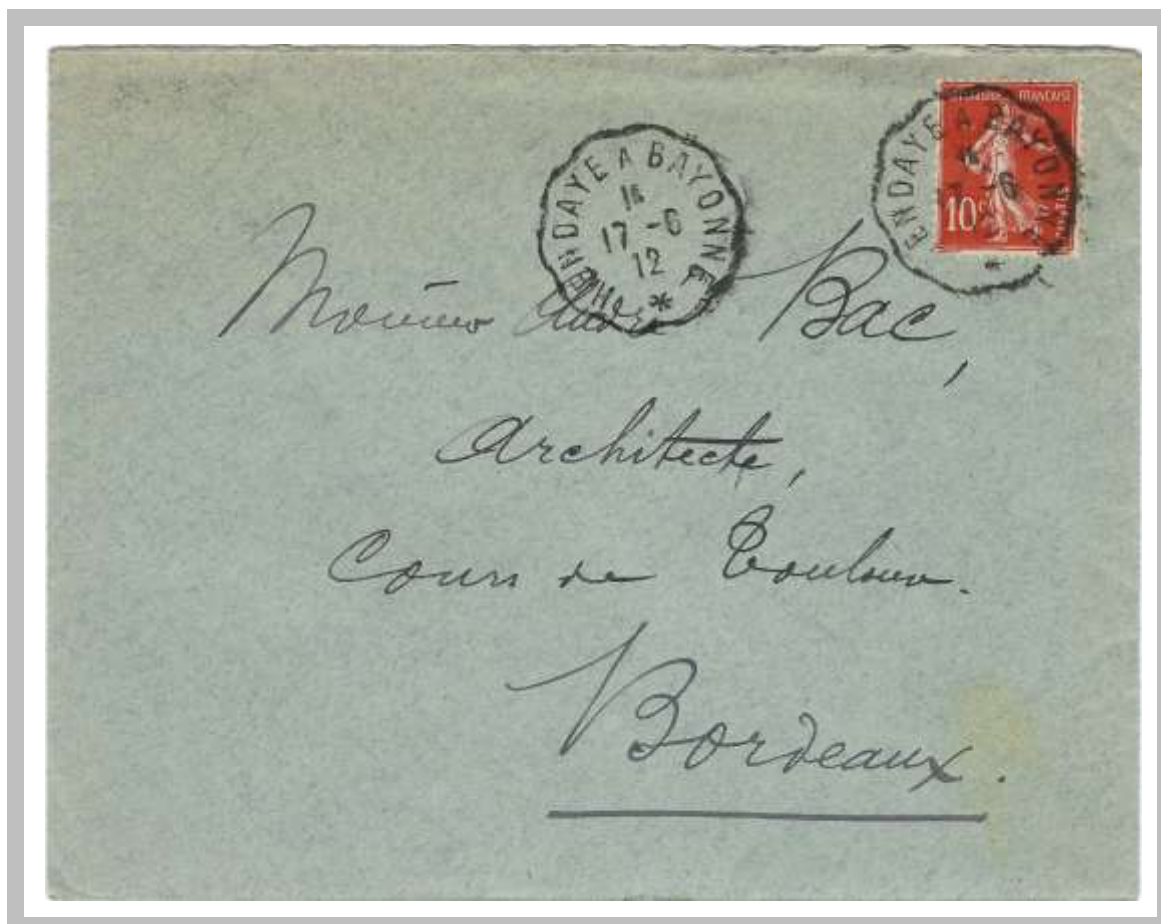 HENDAYE A BAYONNE *
17 -6
12
ENDAYE A BAYONN *
FRANÇAISE
10c
Monsieur André Bac,
Architecte,
Cours de Toulouse.
Bordeaux.